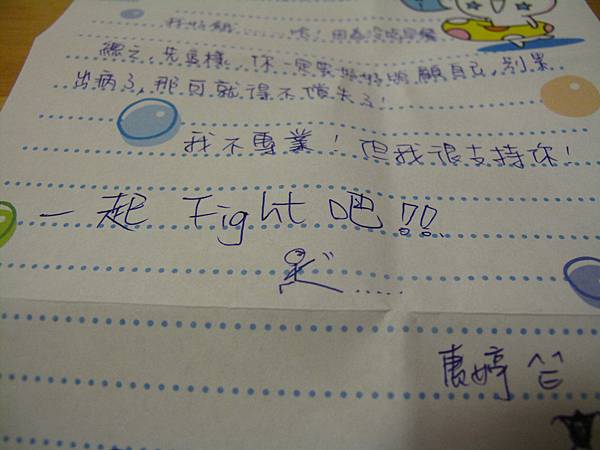 總之,先這樣,你一定要好好照顧自己,別累
出病了,那可就得不償失了!
我不專業!但我很支持你!
一起 Fight 吧!!
惠婷 ^_^